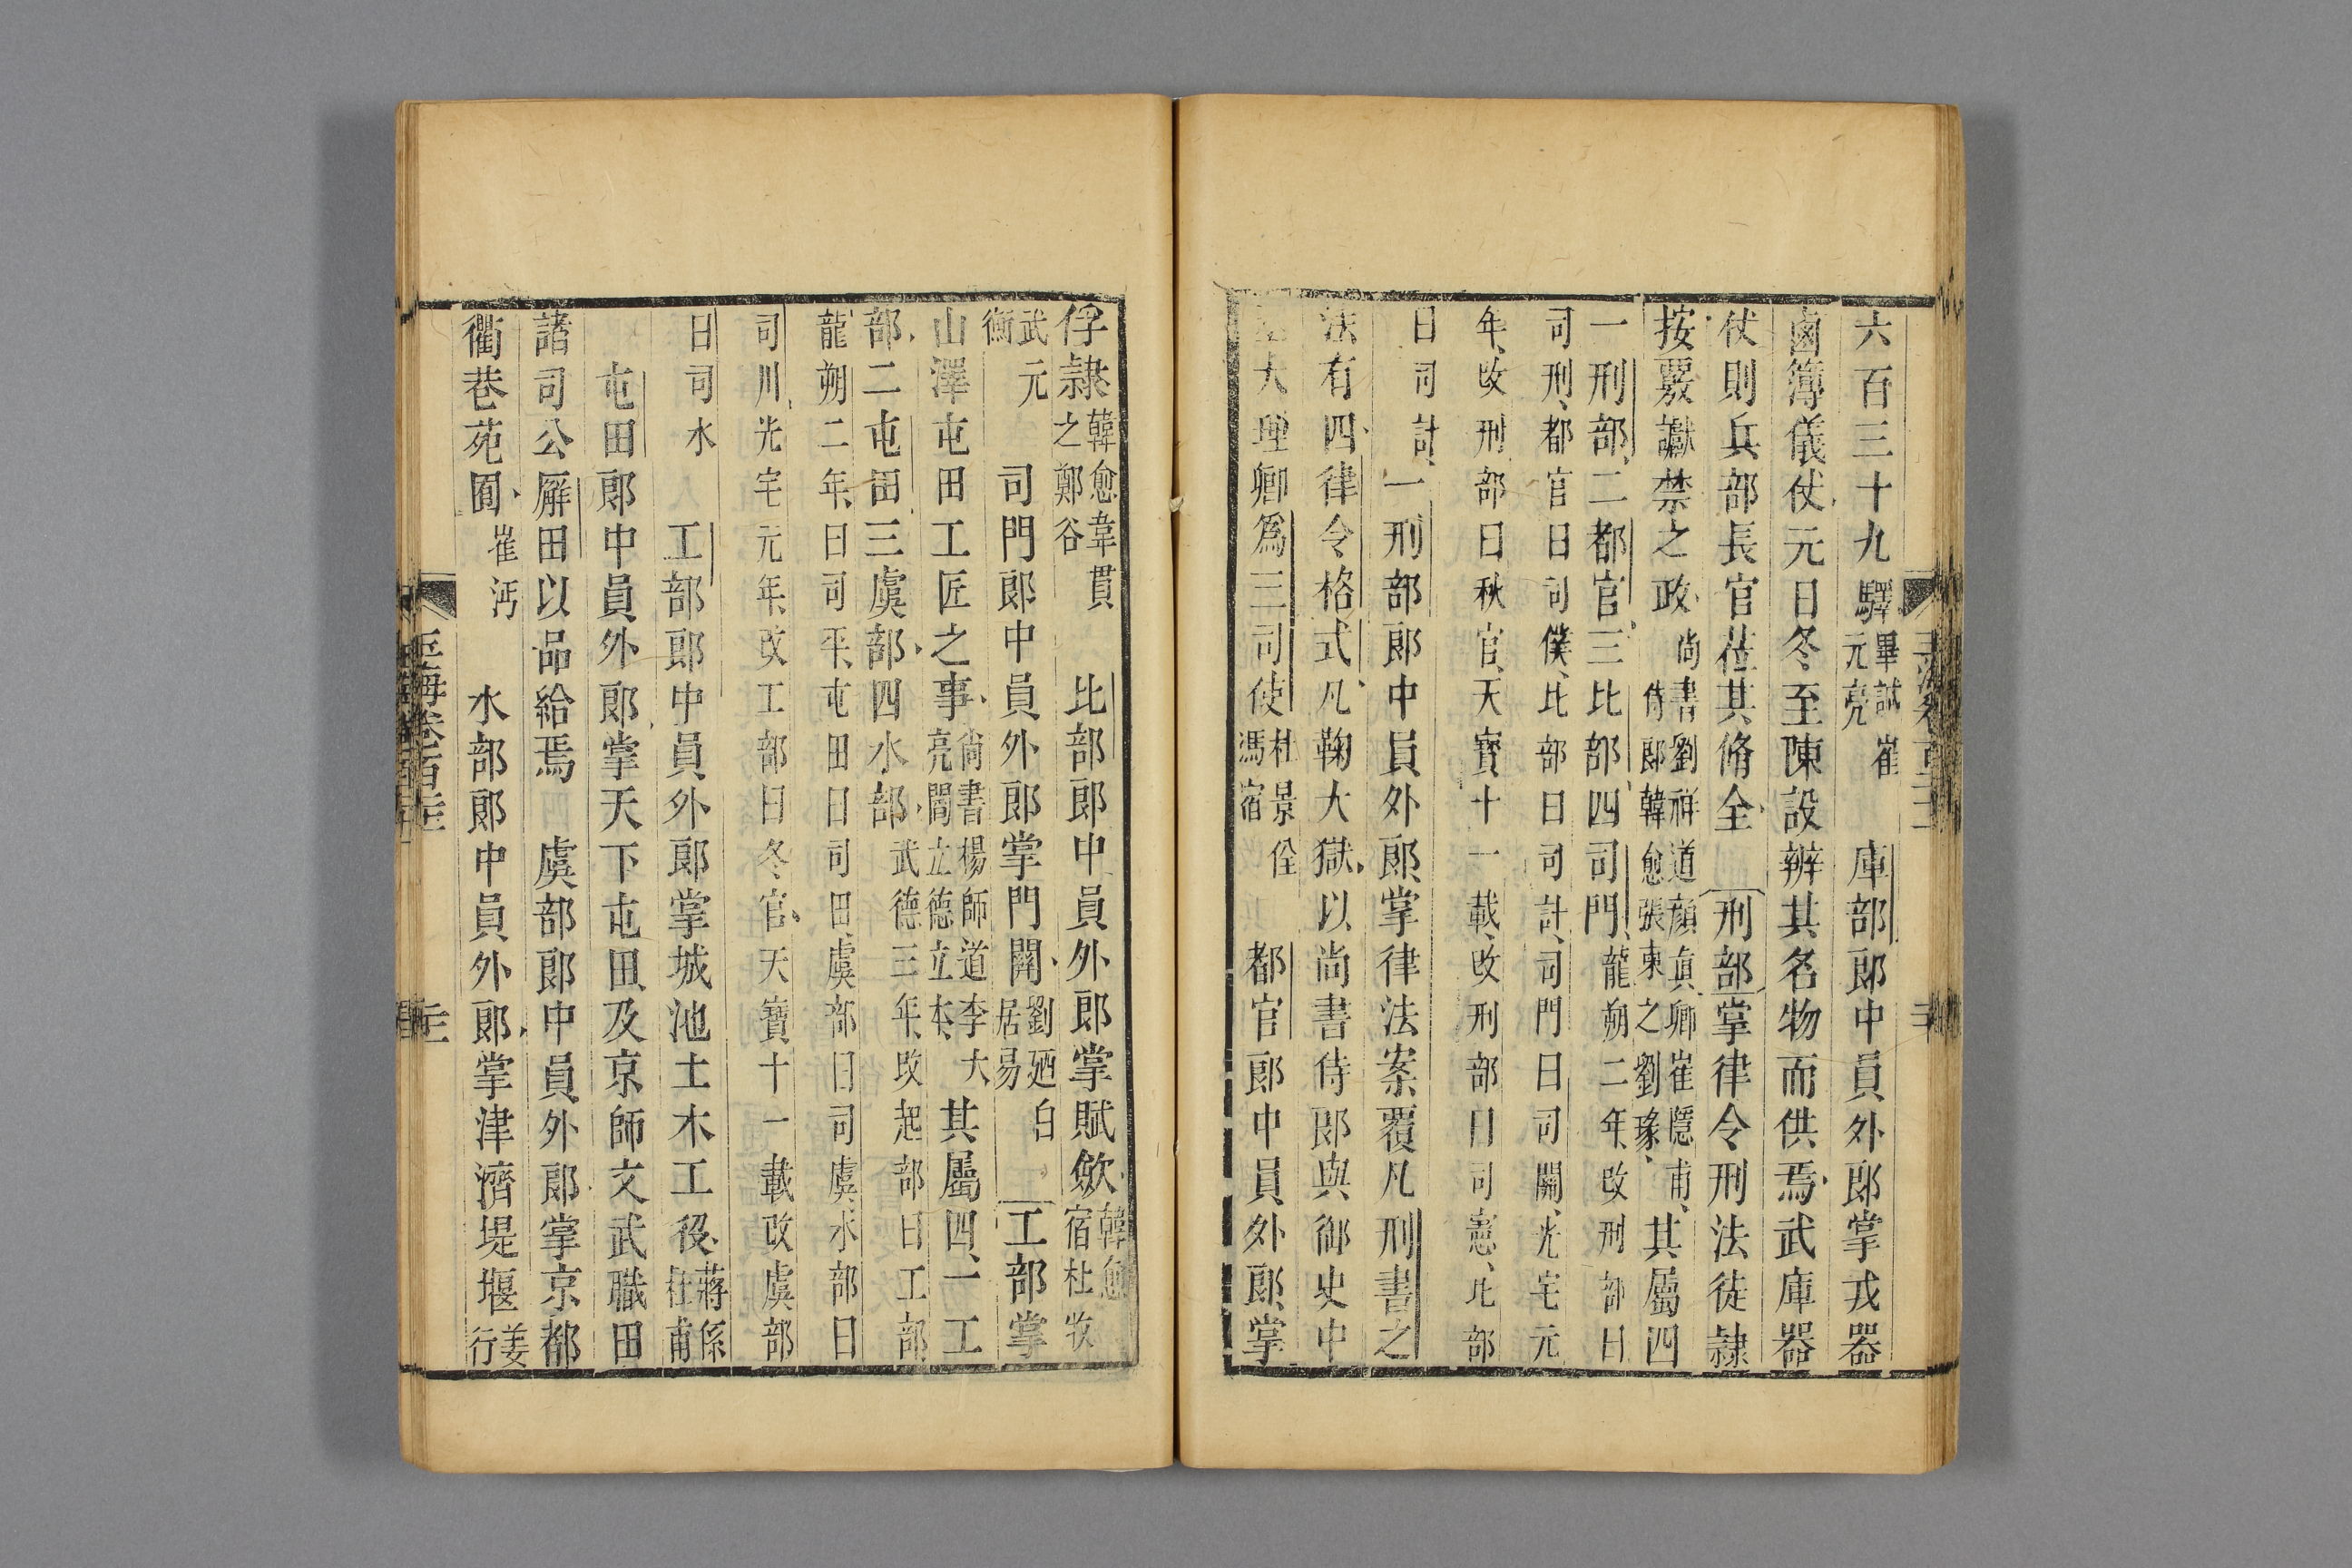 六百三十九驛畢諴崔元亮庫部郎中員外郎掌戎器
鹵簿儀仗元日冬至陳設辨其名物而供焉武庫器
仗則兵部長官莅其脩全刑部掌律令刑法徒隸
按覈讞禁之政尚書劉祥道顔眞卿崔隱甫侍郎韓愈張柬之劉瑑其屬四
一刑部二都官三比部四司門龍朔二年改刑部曰
司刑都官曰司僕比部曰司計司門曰司關光宅元
年改刑部曰秋官天寶十一載改刑部曰司憲比部
曰司計一刑部郎中員外郎掌律法案覆凡刑書之
法有四律令格式凡鞠大獄以尚書侍郎與御史中
大理卿爲三司使杜景佺馮宿都官郎中員外郎掌
俘隸韓愈韋貫之鄭谷比部郎中員外郎掌賦斂韓愈宿杜牧
武元衡司門郎中員外郎掌門關劉廼白居易工部掌
山澤屯田工匠之事尚書楊師道李大亮閻立德立本其屬四一工
部二屯田三虞部四水部武德三年改起部曰工部
龍朔二年曰司平屯田曰司田虞部曰司虞水部曰
司川光宅元年改工部曰冬官天寶十一載改虞部
曰司水工部郎中員外郎掌城池土木工役蔣係杜甫
屯田郎中員外郎掌天下屯田及京師文武職田
諸司公廨田以品給焉虞部郎中員外郎掌京都
衢巷苑囿崔沔水部郎中員外郎掌津濟堤堰姜行
玉海卷百二十